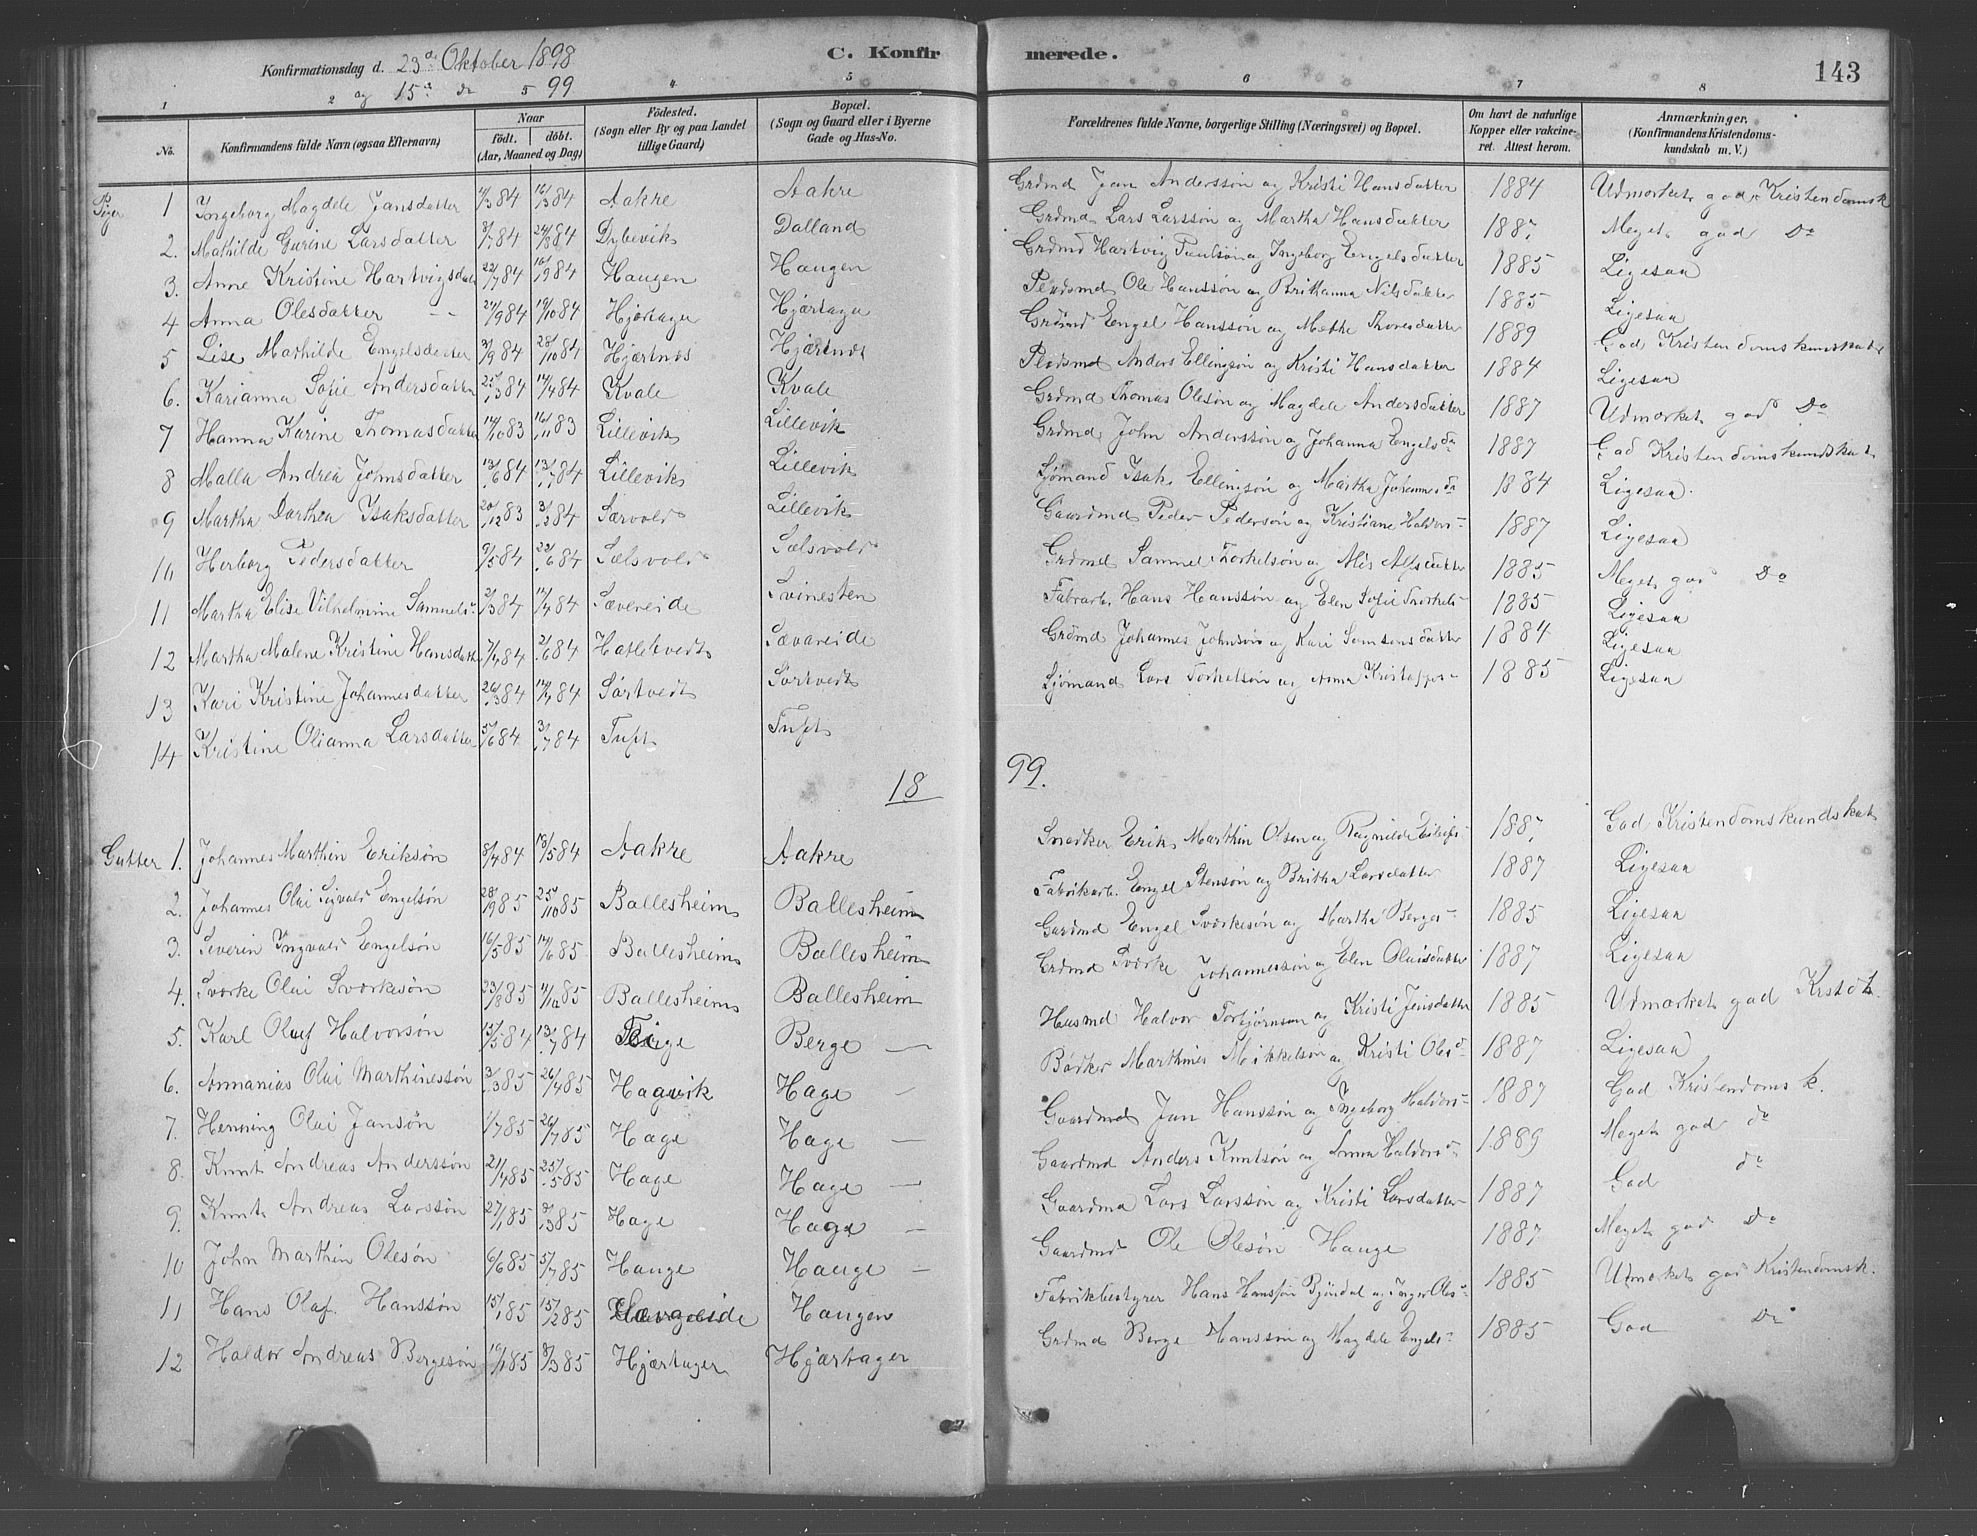 Konfirmationsdag d. 23d Oktober 1898
og 15d do 99
C. Konfirmerede.
143
1 2 3 4 5 6 7 8
No.
Konfirmandens fulde Navn (ogsaa Efternavn)
Naar
födt. döbt.
(Aar, Maaned og Dag)
Födested.
(Sogn eller By og paa Landet tillige Gaard)
Bopæl.
(Sogn og Gaard eller i Byerne Gade og Hus-No.
Forældrenes fulde Navne, borgerlige Stilling (Næringsvei) og Bopæl.
Om havt de naturlige Kopper eller vaccineret. Attest herom.
Anmærkninger.
(Konfirmandens Kristendomskundskab m. V.)
Piger 1 Ingeborg Magdele Jansdatter 84 16/3 84 Aakre Aakre Grdmd Jan Anderssøn og Kristi Hansdatter 1884 Udmærket god Kristendomsk
2. Mathilde Gurine Larsdatter 84 24/8 84 Dybevik Dalland Grdmd Lars Larssøn og Martha Hansdatter 1887 Meget god Do
3. Anne Kristine Hartvigsdat 22/7 84 84 Haugen Haugen Grdmd Hartvig Paulsøn og Ingeborg Engelsdatter 1885 Ligesaa
4 Anna Olesdatter 84 19/10 84 Hjørtager Hjørtager Pladsmd Ole Hanssøn og Brithanna Nilsdatter 1885 Ligesaa
5 Lise Mathilde Engelsdatter 84 84 Hjærtnes Hjærtnes Grdmd Engel Hanssøn og Methe Thoresdatter 1889 God Kristendomskundskab
6. Karianna Sofie Andersdatter 84 14/4 84 Kvale Kvale Pladsmd Anders Ellingsøn og Kristi Hansdatter 1884 Ligesaa
7 Hanna Karine Thomasdatter 14/10 83 16/11 83 Lillevik Lillevik Grdmd Thomas Olesøn og Magdele Andersdatter 1887 Udmærket god Do
8 Malla Andrea Johnsdatter 13/6 84 13/7 84 Lillevik Lillevik Grdmd John Anderssøn og Johanna Engelsda 1887 God Kristendomskundskab
9 Martha Dorthea Isaksdatter 20/12 83 84 Særvold Lillevik Sjømand Isak Ellingsøn og Martha Johannesda 1884 Ligesaa
10 Herborg Pedersdatter 9/5 84 22/6 84 Sælsvold Sælsvold Gaardmd Peder Pedersøn og Kristiane Haldors- 1887 Ligesaa
11 Martha Elise Vilhelmine Samuels- 84 84 Sævereide Svinesten Grdmd Samuel Torkelsøn og 1885 Meget god Do
12 Martha Malene Kristine Hansdatt 7/4 84 84 Hatlehvedt Sævareide Fabrarb. Hans Hanssøn og Elen Sofie Torkels- 1885 Ligesaa
13 Kari Kristine Johannesdatter 26/3 84 84 Sørtvedt Sørtvedt Grdmd Johannes Johnsøn og Kari Samsonsdatter 1884 Ligesaa
14 Kristine Olianna Larsdatter 5/6 84 84 Tuft Tuft Sjømand Lars Torkelsøn og Anna Kristoffers- 1885 Ligesaa
18 99.
Gutter 1. Johannes Marthin Eriksøn 8/4 84 18/5 84 Aakre Aakre Snedker Erik Marthin Olsen og Ragnilde Eilifs- 1887 God Kristendomskundskab
2. Johannes Olai Sigvald Engelsøn 28/9 85 25/10 85 Ballesheim Ballesheim Fabrikarb. Engel Stensøn og Britha Larsdatter 1887 Ligesaa
3. Severin Ingvald Engelsøn 16/5 85 14/6 85 Ballesheim Ballesheim Gardmd Engel Sværkesøn og Martha Berges- 1885 Ligesaa
4. Sværke Olai Sværkesøn 23/8 85 11/10 85 Ballesheim Ballesheim Grdmd Sværke Johannessøn og Elen Olaisdatter 1887 Ligesaa
5. Karl Oluf Halvorsøn 15/5 84 13/7 84 Berge Husmd Halvor Torbjørnsen og Kristi Jensdatter 1885 Udmærket god
6. Annanias Olai Marthinessøn 85 26/4 85 Hagavik Hage Bødker Marthines Mikkelsøn og Kristi Olesd 1887 Ligesaa
7. Henning Olai Jansøn 1/7 85 26/7 85 Hage Hage Gaardmd Jan Hanssøn og Ingeborg Haldors- 1887 God Kristendoms k.
8. Knut Andreas Anderssøn 21/4 85 25/5 85 Hage Hage Gaardmd Anders Knutsøn og Anna Haldorsd 1889 Meget god do
9. Knut Andreas Larssøn 27/1 85 85 Hage Hage Gaardmd Lars Larssøn og Kristi Larsdatter 1887 God do
10 John Marthin Olesøn 6/6 85 5/7 85 Hauge Hauge Gaardmd Ole Olesøn Hauge 1887 Meget god Do
11 Hans Olaf Hanssøn 15/1 85 15/2 85 Haugen Fabrikbestyrer Hans Hanssøn Bjøndal og Inger Oles- 1885 Udmærket god Kristendomsk.
12 Haldor Andreas Bergesøn 85 8/3 85 Hjærtager Hjærtager Grdmd Berge Hanssøn og Magdele Engels- 1885 God Do